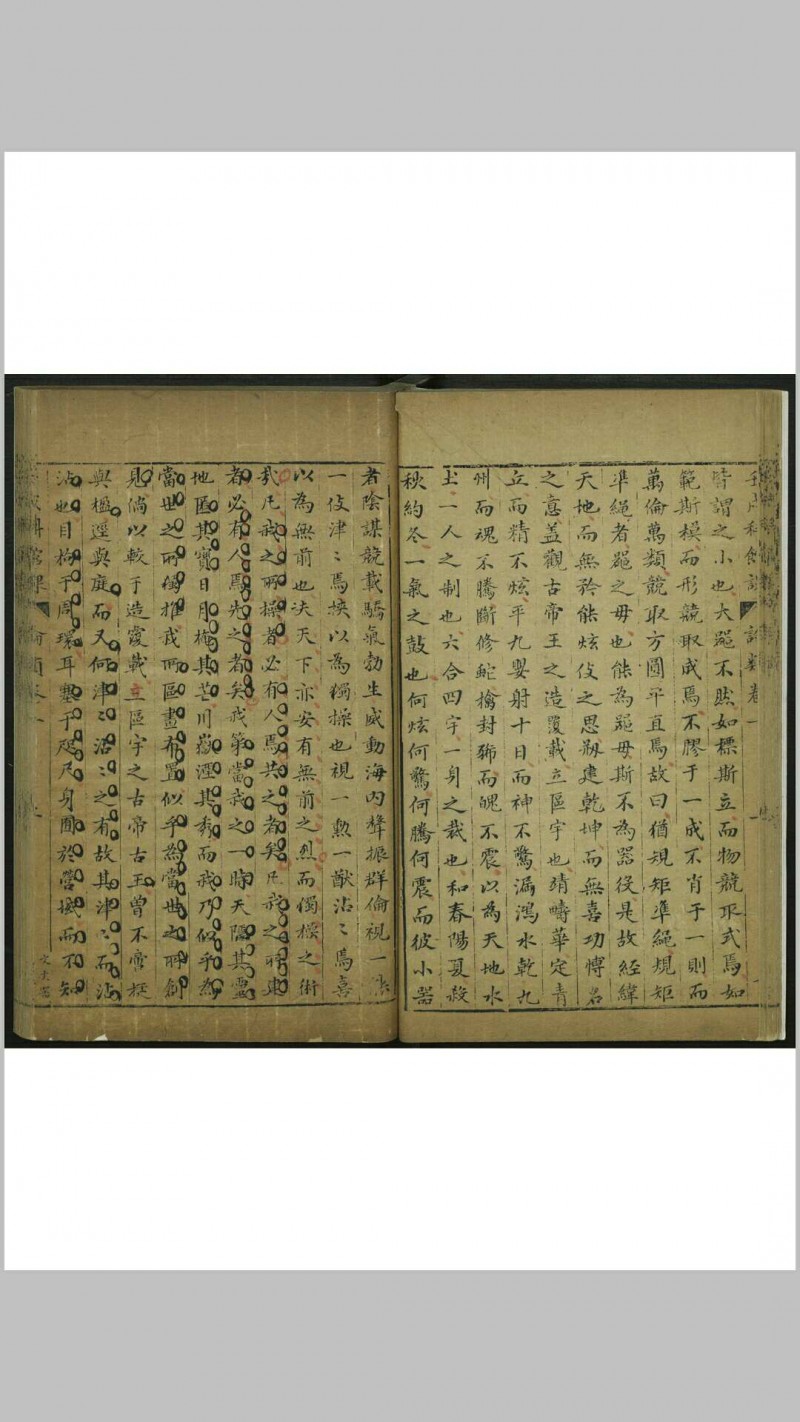 皆謂之小也大器不然如標斯立而物競取式焉如
範斯模而形競取成焉不膠于一成不肖于一則而
萬倫萬類競取方圓平直焉故曰猶規矩準繩規矩
準繩者器之母也能為器母斯不為器役是故經緯
天地而無矜能炫伐之思剏建乾坤而無喜功愽名
之意蓋觀古帝王之造覆載立區宇也靖疇華定青
立而精不炫平九嬰射十日而神不驚漏鴻水乾九
州而魂不騰斷修蛇擒封豨而魄不震以為天地水
土一人之制也六合四宇一身之裁也和春陽夏殺
秋約冬一氣之鼓也何炫何驚何騰何震而彼小器
者陰謀競載驕氣勃生威動海内聲振群倫視一
一伎津〻焉挾以為獨操也視一勲一猷沾〻焉喜
以為無前也夫天下亦安有無前之烈而獨操之術
哉凡我之所操者必有人焉共之者矣凡我之所建
者必有人焉先之者矣我第當我之一時天閟其靈
地匿其寳日月掩其芒川嶽湮其秀而我乃似乎為
當世之所獨推我所區畫布置似乎為當世之所創
見倘以較于造覆載立區宇之古帝古王曾不啻梃
與楹逕與庭而又何津〻沾〻之有故其津〻而沾
沾也目拘于周環耳塾于咫尺身囿於營域而不知